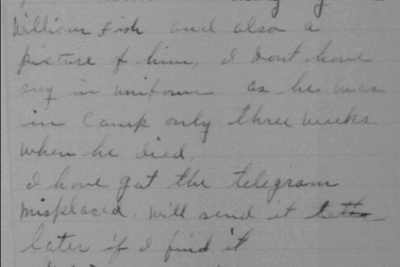 William Fish and also a
picture of him, I dont have
any in uniform as he was
in Camp only three weeks
when he died.
I have got the telegram
misplaced, will send it
later if I find it